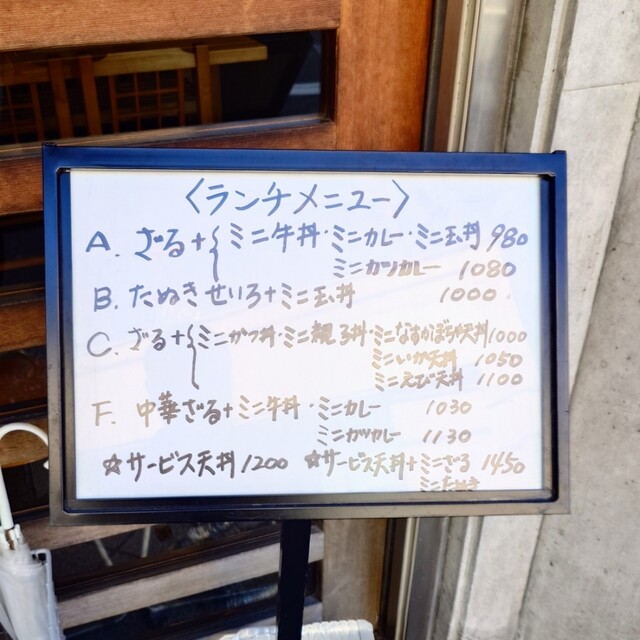 〈ランチメニュー〉
A. ざる+{ミニ牛丼・ミニカレー・ミニ玉丼 980
ミニカツカレー 1080
B. たぬきせいろ+ミニ玉丼 1000
C. ざる+{ミニかつ丼・ミニ親子丼・ミニなすかぼちゃ天丼 1000
ミニいか天丼 1050
ミニえび天丼 1100
F. 中華ざる+ミニ牛丼・ミニカレー 1030
ミニカツカレー 1130
☆サービス天丼 1200 ☆サービス天丼+ミニざる 1450